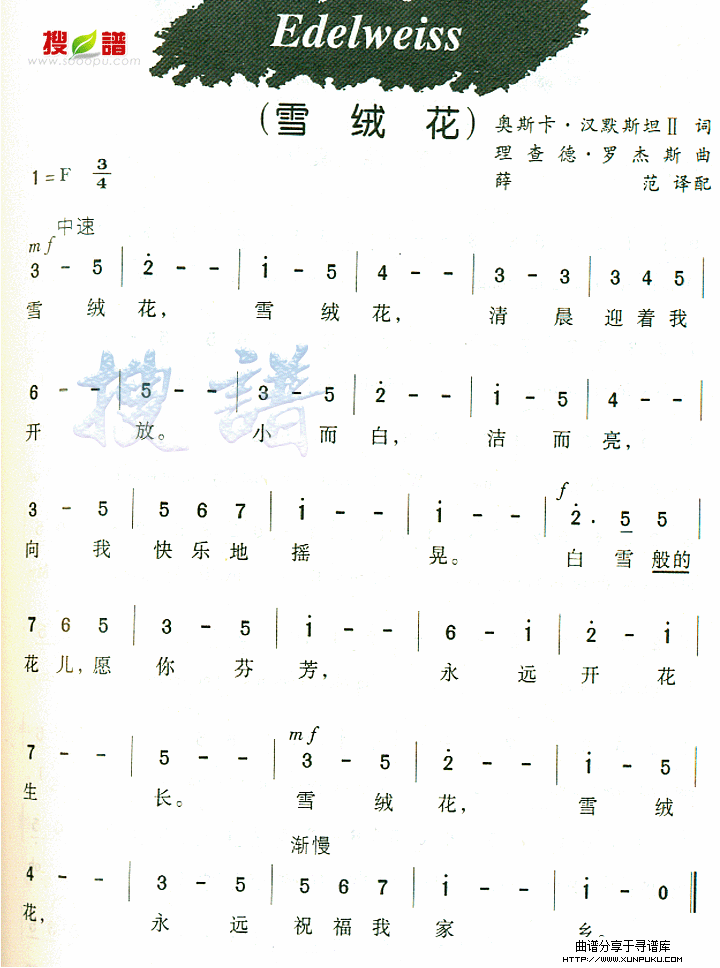 搜譜
www.sooopu.com
Edelweiss
(雪绒花)
奥斯卡·汉默斯坦Ⅱ 词
理查德·罗杰斯曲
薛范译配
1=F 3/4
中速
mf
3 - 5 | 2̇ - - | 1̇ - 5 | 4 - - | 3 - 3 | 3 4 5 |
雪 绒 花, 雪 绒 花, 清 晨 迎 着 我
搜譜
6 - - | 5 - - | 3 - 5 | 2̇ - - | 1̇ - 5 | 4 - - |
开 放。 小 而 白, 洁 而 亮,
f
3 - 5 | 5 6 7 | 1̇ - - | 1̇ - - | 2̇. 5 5 |
向 我 快 乐 地 摇 晃。 白 雪 般的
7 6 5 | 3 - 5 | 1̇ - - | 6 - 1̇ | 2̇ - 1̇ |
花 儿, 愿 你 芬 芳, 永 远 开 花
mf
7 - - | 5 - - | 3 - 5 | 2̇ - - | 1̇ - 5 |
生 长。 雪 绒 花, 雪 绒
渐慢
4 - - | 3 - 5 | 5 6 7 | 1̇ - - | 1̇ - 0 ‖
花, 永 远 祝 福 我 家 乡。
曲谱分享于寻谱库
HTTP://WWW.XUNPUKU.COM